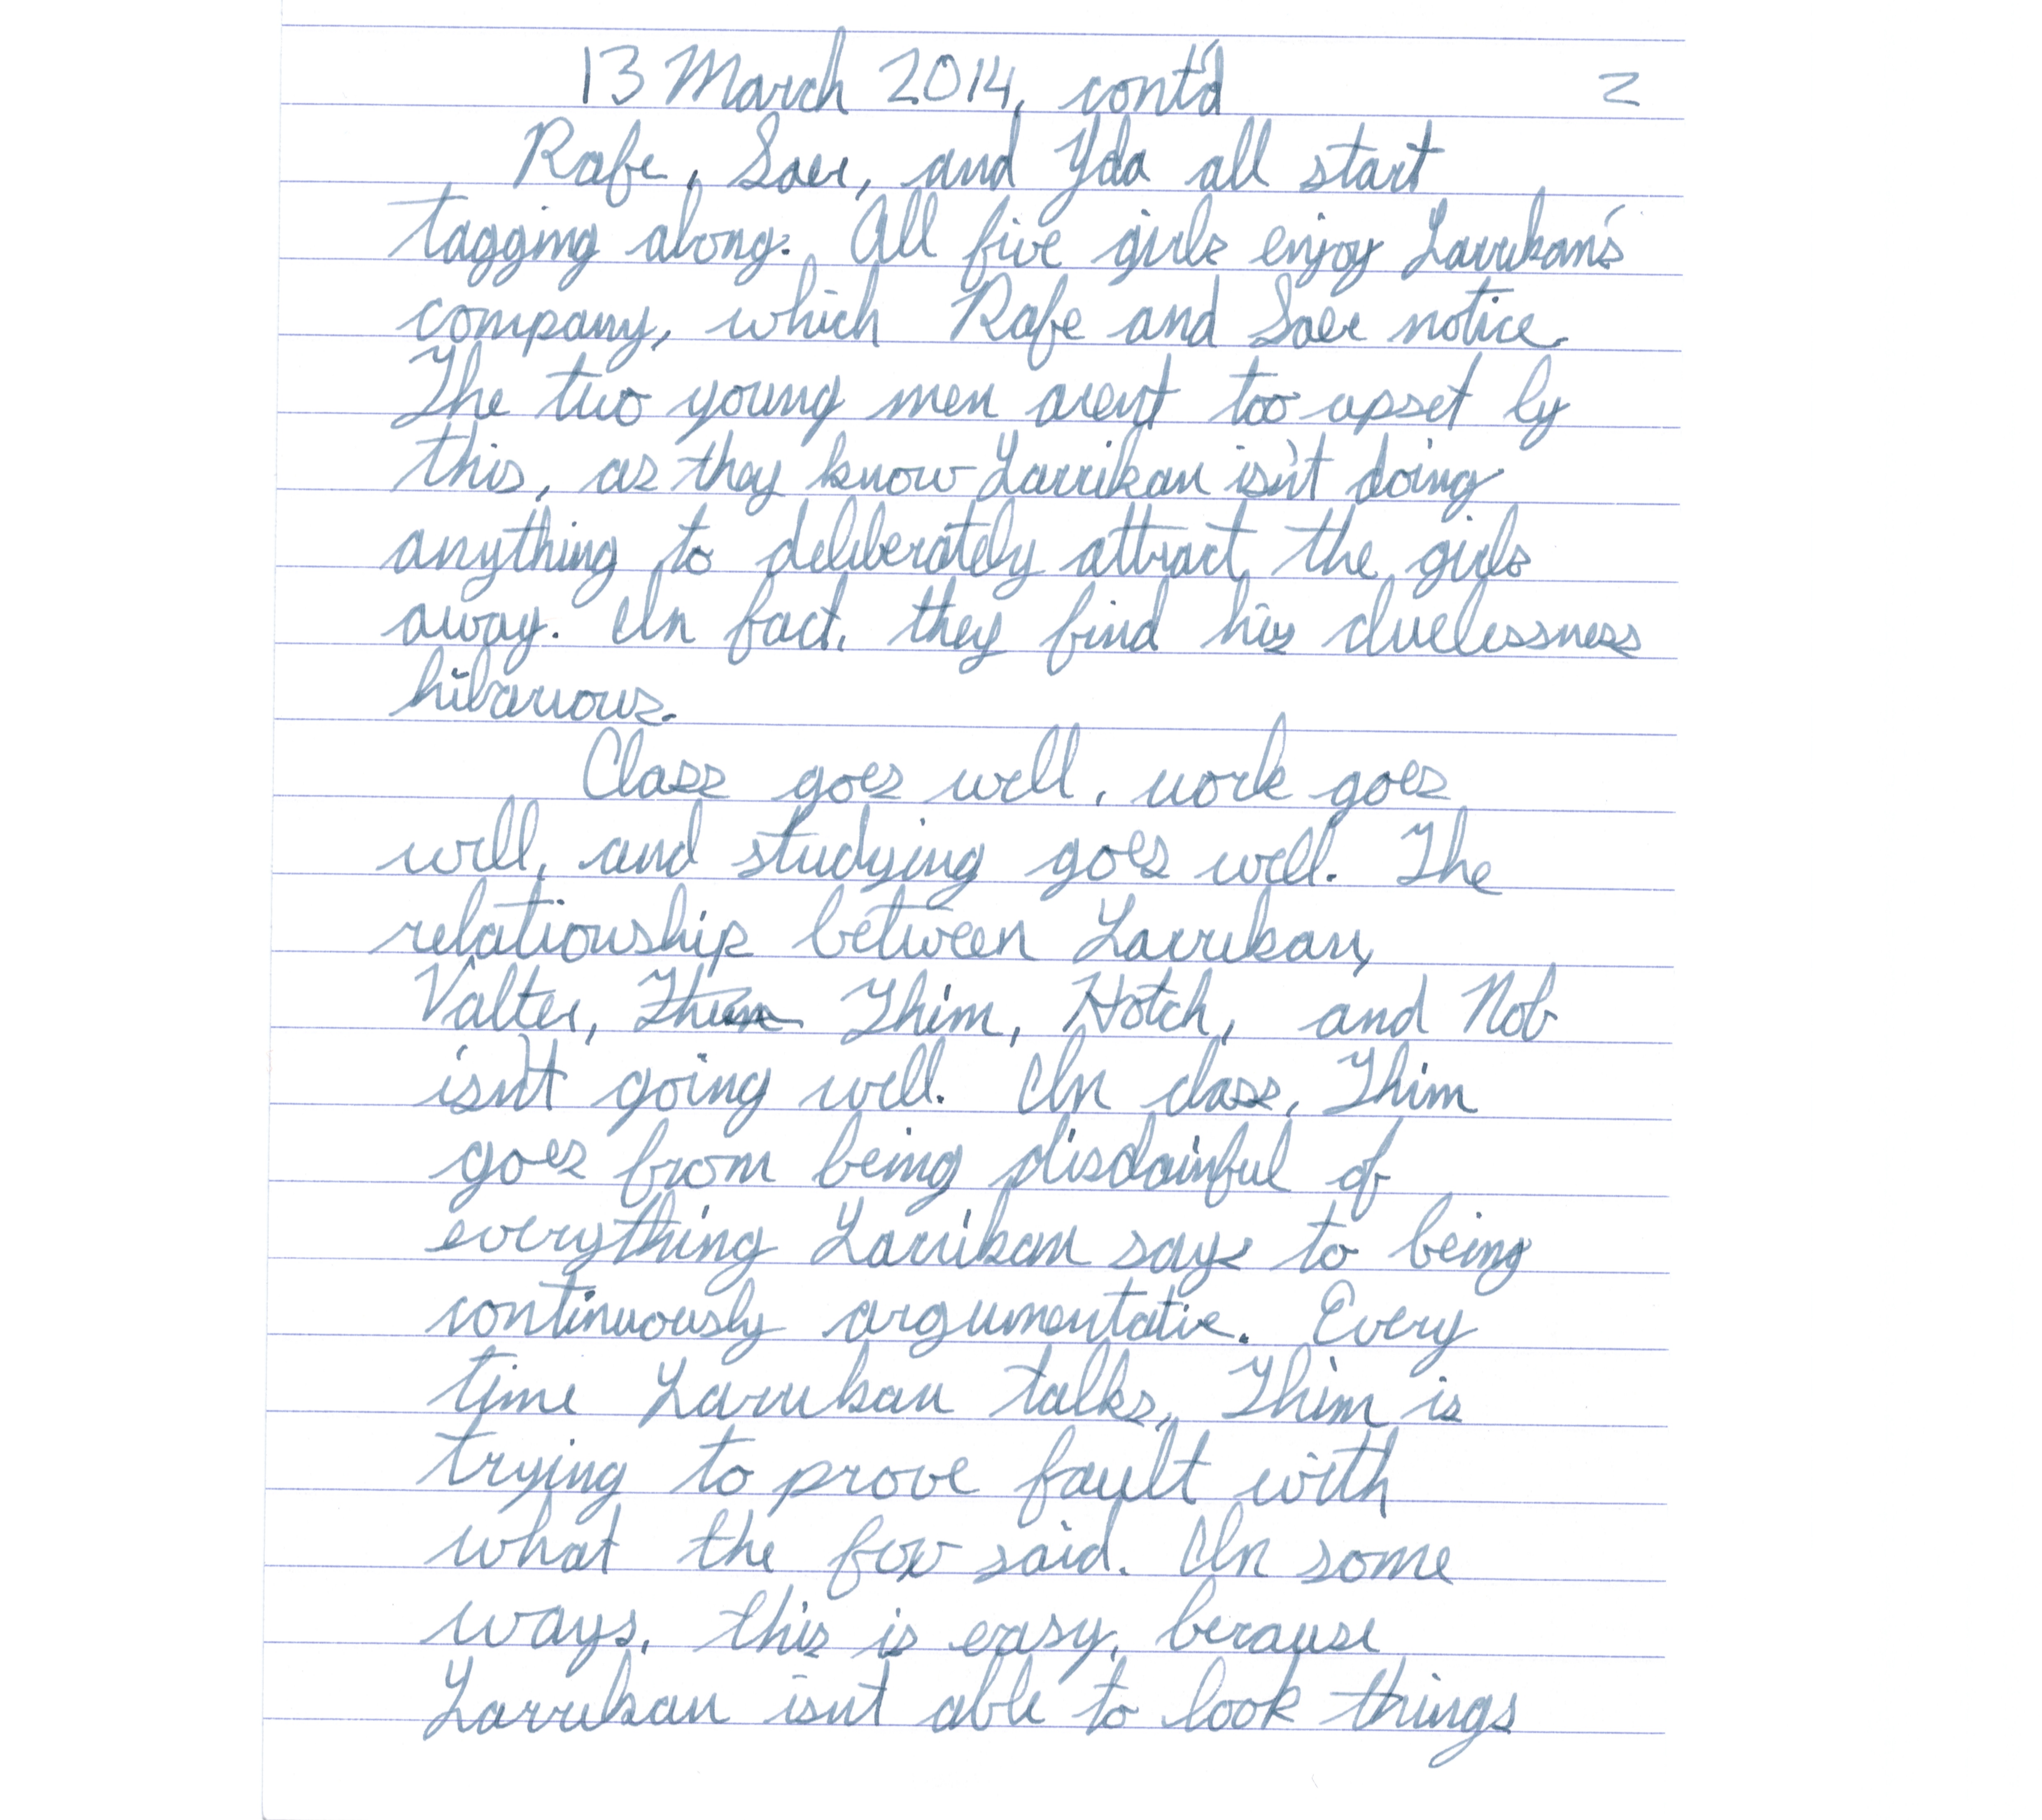 13 March 2014, cont'd 2
Rafe, Soer, and Yda all start
tagging along. All five girls enjoy Larrikan's
company, which Rafe and Soer notice.
The two young men aren't too upset by
this, as they know Larrikan isn't doing
anything to deliberately attract the girls
away. In fact, they find his cluelessness
hilarious.
Class goes well, work goes
well, and studying goes well. The
relationship between Larrikan,
Valter, Thim, Hotch, and Nob
isn't going well. In class, Thim
goes from being disdainful of
everything Larrikan says to being
continuously argumentative. Every
time Larrikan talks, Thim is
trying to prove fault with
what the fox said. In some
ways, this is easy, because
Larrikan isn't able to look things